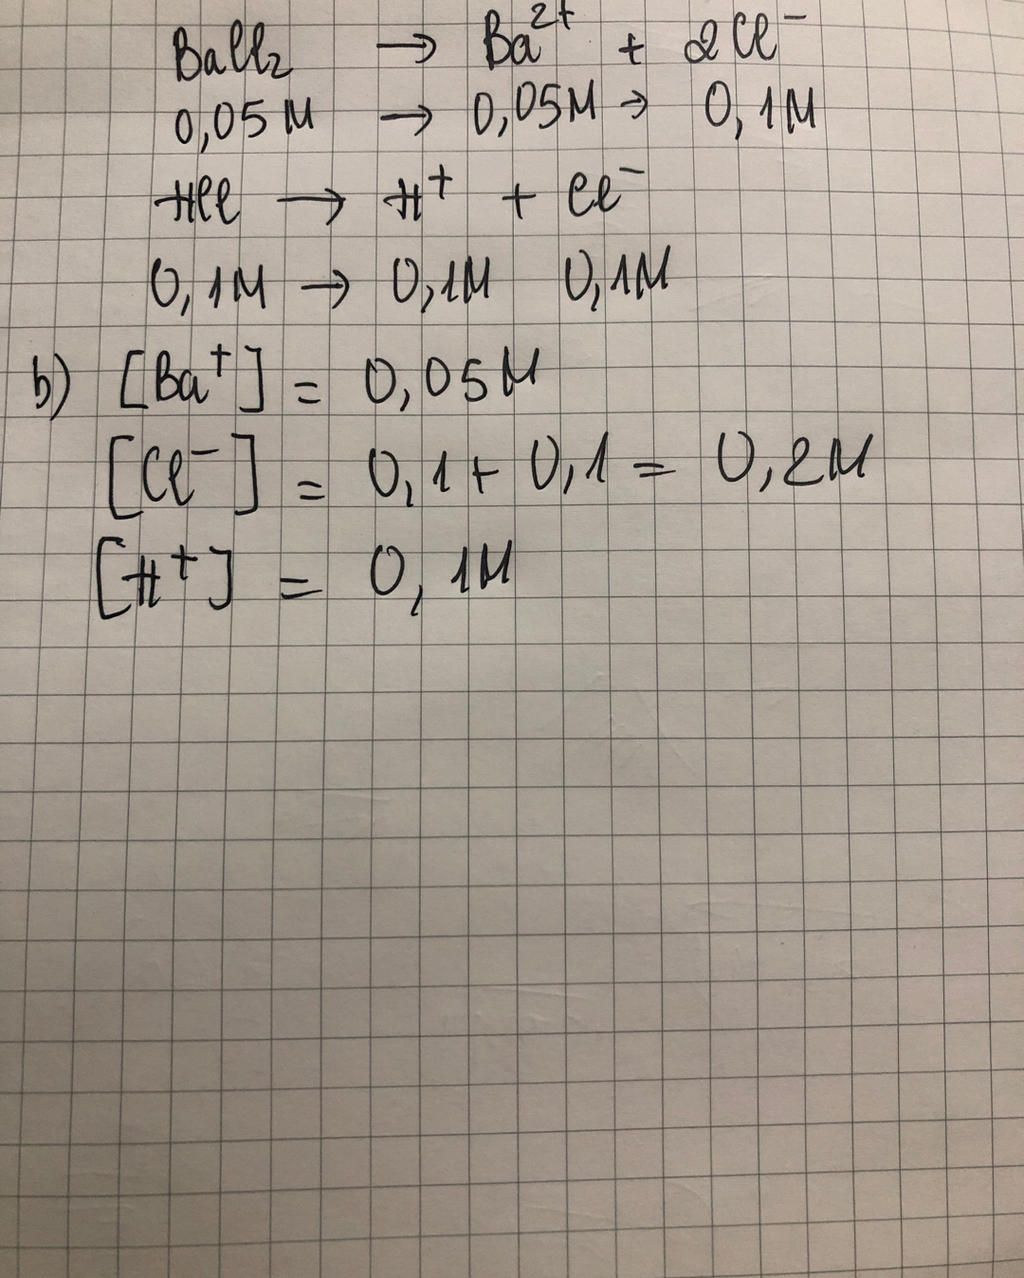 BaCl₂ → Ba²⁺ + 2Cl⁻
0,05M → 0,05M → 0,1M
HCl → H⁺ + Cl⁻
0,1M → 0,1M 0,1M
b) [Ba⁺] = 0,05M
[Cl⁻] = 0,1 + 0,1 = 0,2M
[H⁺] = 0,1M